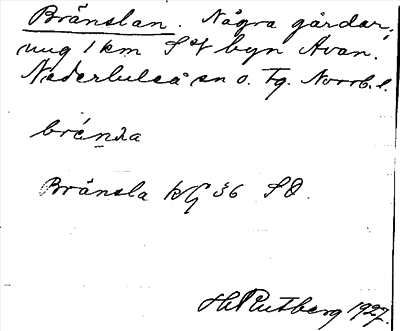 Bränslan. Några gårdar,
nug 1 km S of byn Avan.
Nederluleå sn o. tg. Norrb. l.
brénsla
Bränsla kG 36 SO.
H Rutberg 1927.